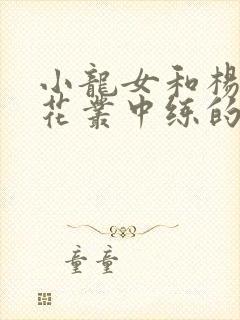 小龍女和楊
花叢中练的
童童